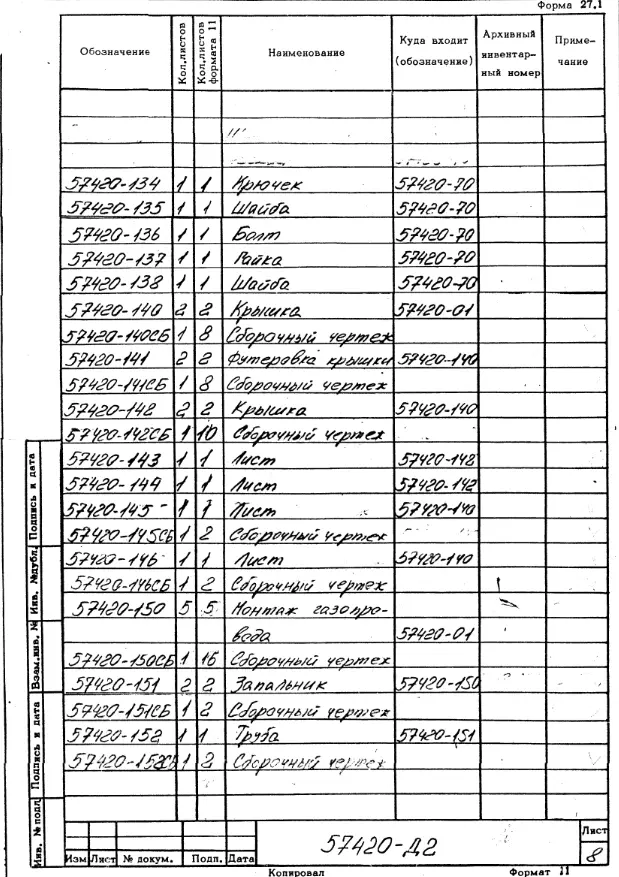 Форма 27.1
Обозначение Кол.листов Кол.листов формата 11 Наименование Куда входит (обозначение) Архивный инвентар- ный номер Приме- чание
57420-134 1 1 Крючек 57420-70
57420-135 1 1 Шайба 57420-70
57420-136 1 1 Болт 57420-70
57420-137 1 1 Гайка 57420-70
57420-138 1 1 Шайба 57420-70
57420-140 2 2 Крышка 57420-01
57420-140СБ 1 8 Сборочный чертеж
57420-141 2 2 Футеровка крышки 57420-140
57420-141СБ 1 8 Сборочный чертеж
57420-142 2 2 Крышка 57420-140
57420-142СБ 1 10 Сборочный чертеж
57420-143 1 1 Лист 57420-142
57420-144 1 1 Лист 57420-142
57420-145 1 1 Лист 57420-140
57420-145СБ 1 2 Сборочный чертеж
57420-146 1 1 Лист 57420-140
57420-146СБ 1 2 Сборочный чертеж
57420-150 5 5 Монтаж газопро-
вода 57420-01
57420-150СБ 1 16 Сборочный чертеж
57420-151 2 2 Запальник 57420-150
57420-151СБ 1 2 Сборочный чертеж
57420-152 1 1 Труба 57420-151
57420-152СБ 1 2 Сборочный чертеж
Подпись и дата
Инв. №дубл.
Взам.инв. №
Подпись и дата
Инв. № подл.
57420-Д2
Лист
8
Изм Лист № докум. Подп. Дата
Копировал Формат 11